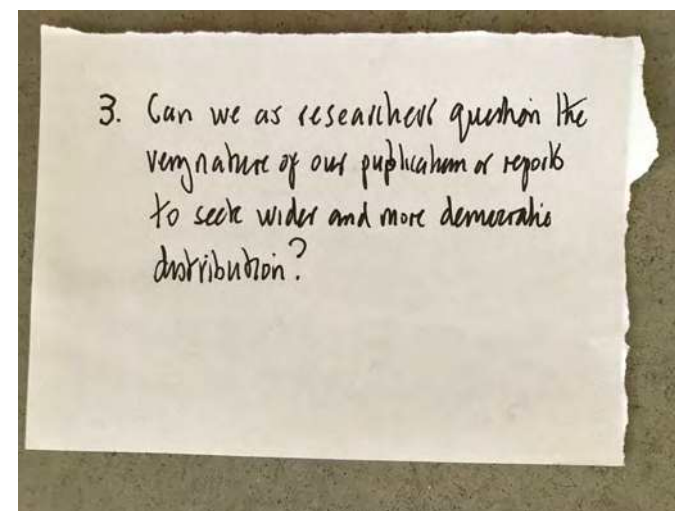 3. Can we as researchers question the
very nature of our puplication or reports
to seek wider and more democratic
distribution?